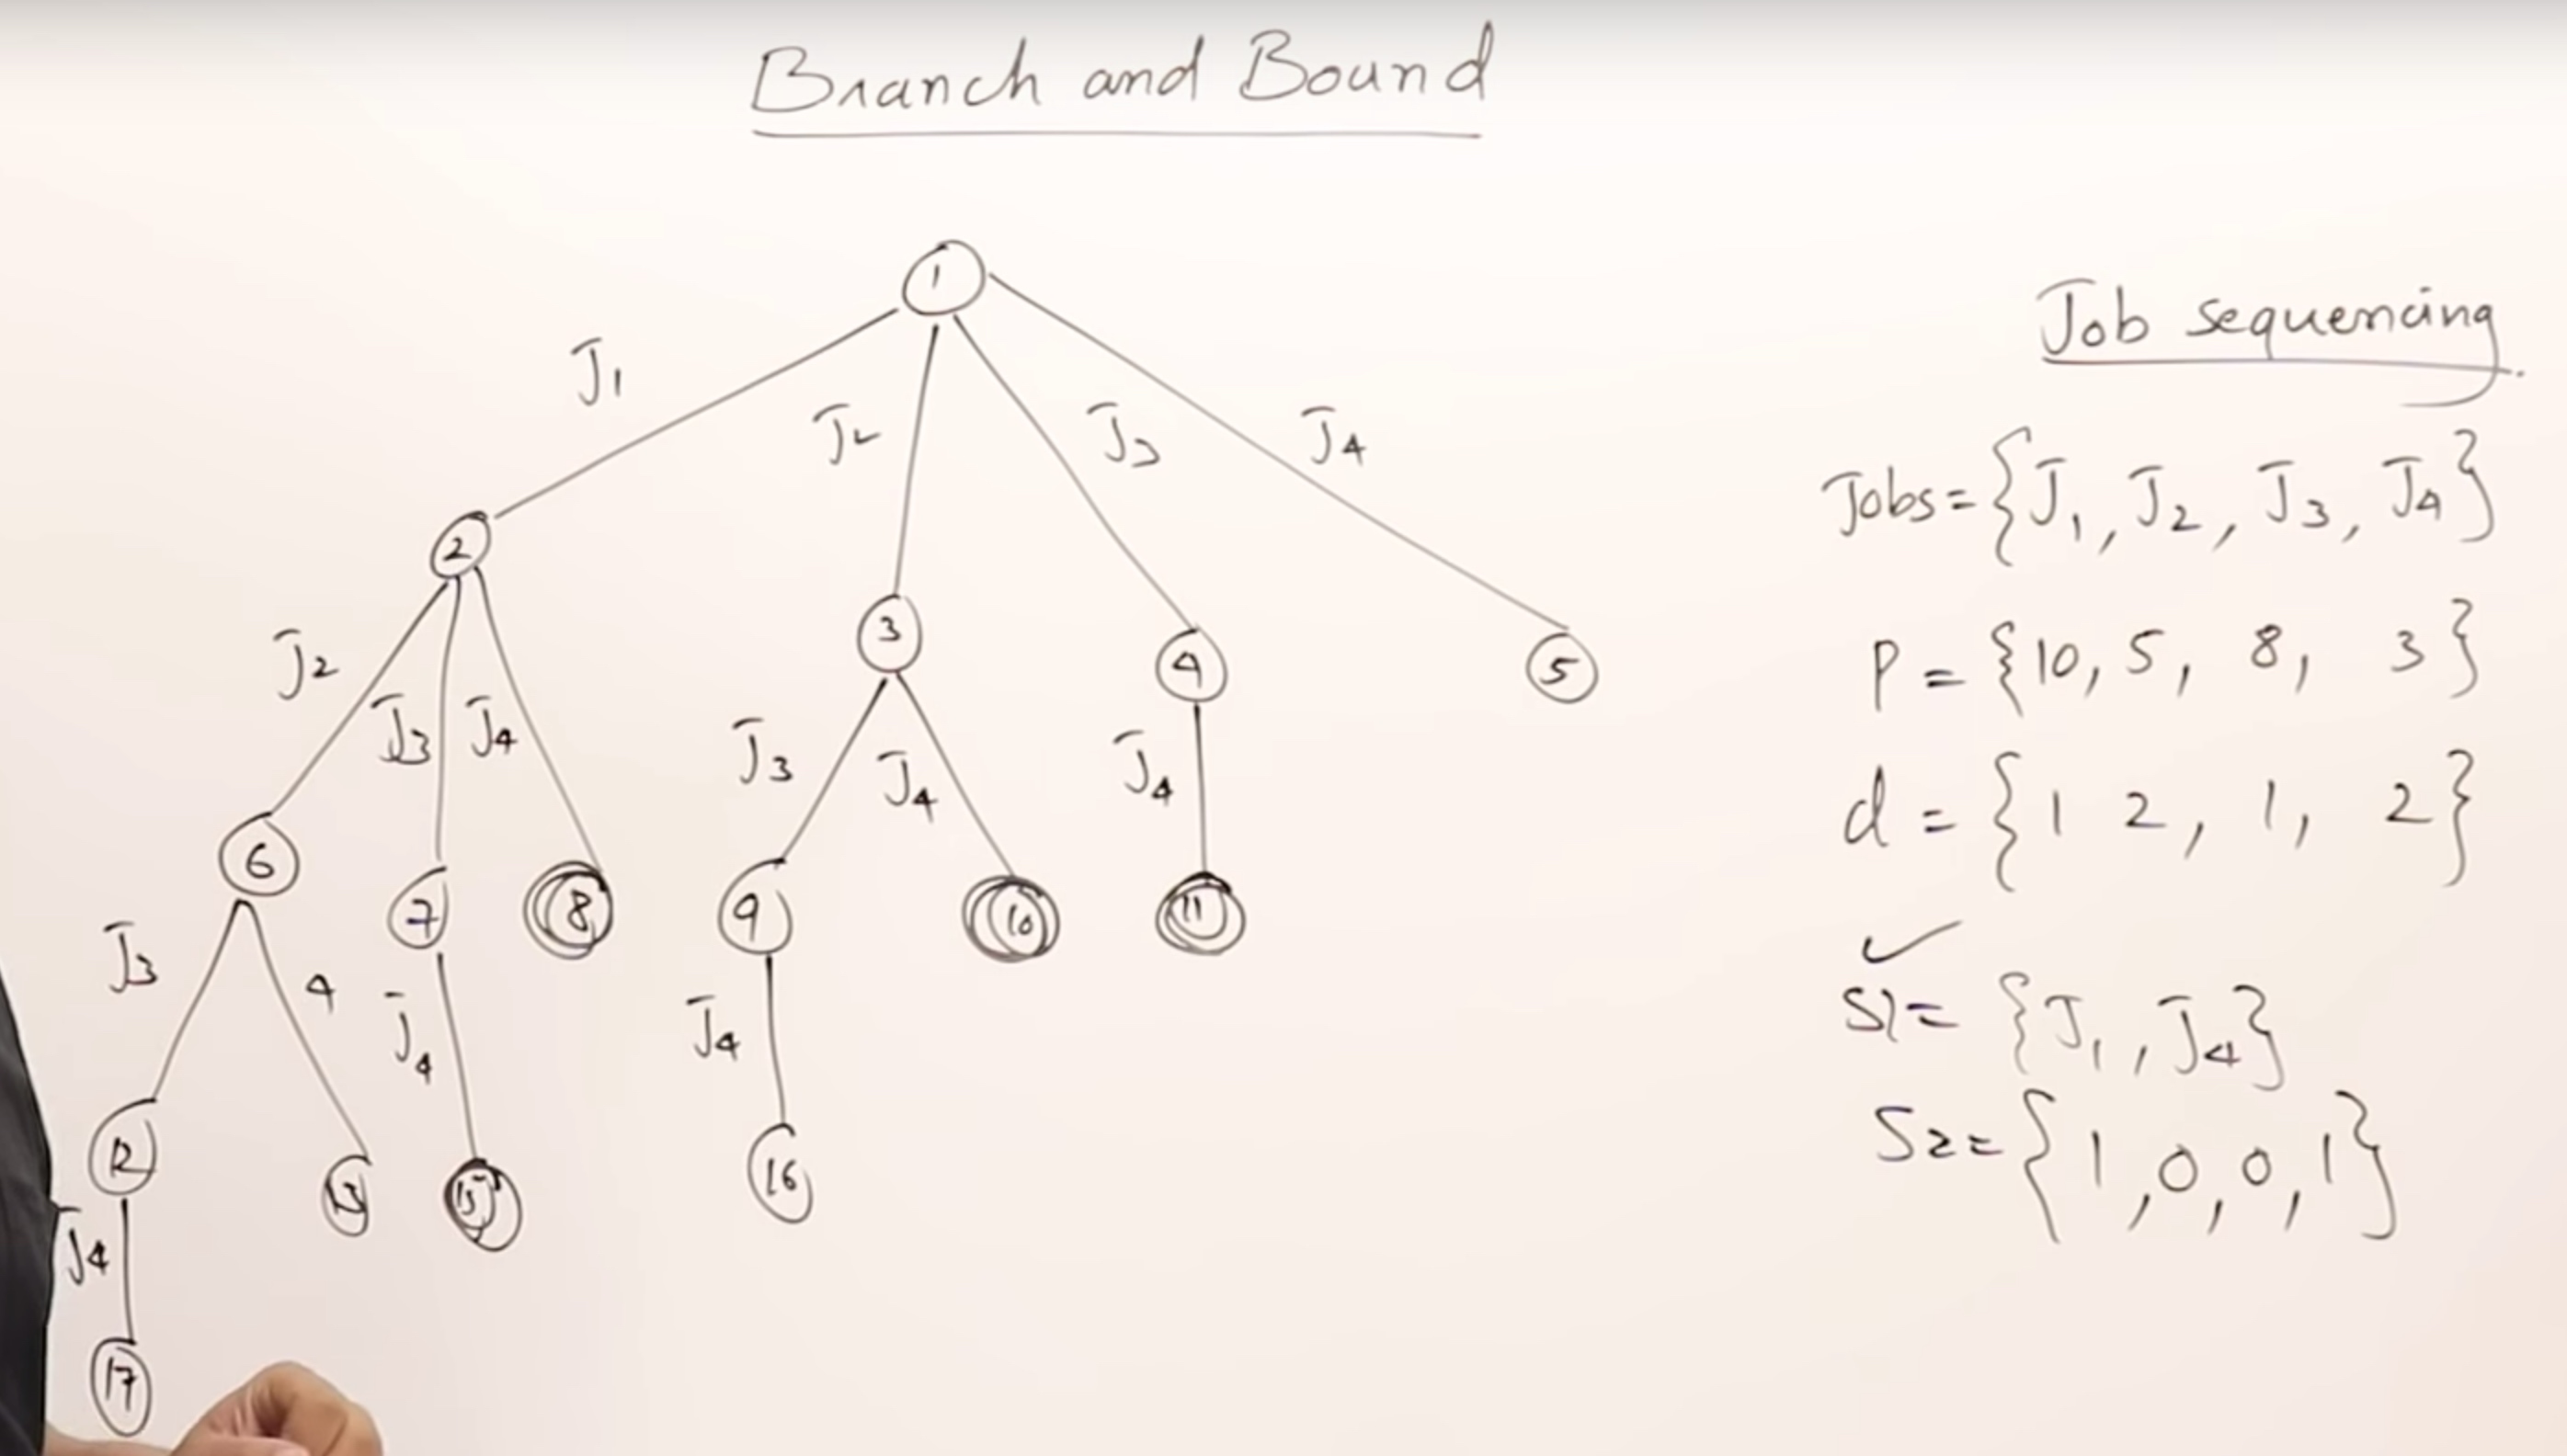 Branch and Bound
1
J1 J2 J3 J4
2 3 4 5
J2 J3 J4 J3 J4 J4
6 7 8 9 10 11
J3 4 J4 J4
12 13 15 16
J4
17
Job sequencing
Jobs = {J1, J2, J3, J4}
P = {10, 5, 8, 3}
d = {1 2, 1, 2}
✓
S1 = {J1, J4}
S2 = {1, 0, 0, 1}